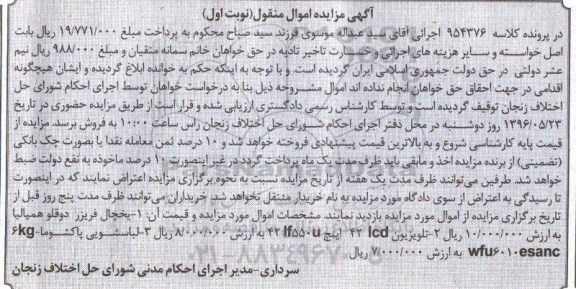 آگهی مزایده اموال منقول(نوبت اول)
در پرونده کلاسه ۹۵۴۳۷۶ اجرائی آقای سید عبداله موسوی فرزند سید صباح محکوم به پرداخت مبلغ ۱۹/۷۷۱/۰۰۰ ریال بابت
اصل خواسته و سایر هزینه های اجرائی و خسارت تاخیر تادیه در حق خواهان خانم سمانه متقیان و مبلغ ۹۸۸/۰۰۰ ریال نیم
عشر دولتی در حق دولت جمهوری اسلامی ایران گردیده است. و با توجه به اینکه حکم به خوانده ابلاغ گردیده و ایشان هیچگونه
اقدامی در جهت احقاق حق خواهان انجام نداده اند اموال مشروحه ذیل بنا به درخواست خواهان توسط اجرای احکام شورای حل
اختلاف زنجان توقیف گردیده است و توسط کارشناس رسمی دادگستری ارزیابی شده و قرار است از طریق مزایده حضوری در تاریخ
۱۳۹۶/۰۵/۲۳ روز دوشنبه در محل دفتر اجرای احکام شورای حل اختلاف زنجان راس ساعت ۱۰:۰۰ به فروش برسد. مزایده از
قیمت پایه کارشناسی شروع و به بالاترین قیمت پیشنهادی فروخته خواهد شد و ۱۰ درصد ثمن معامله نقدا یا بصورت چک بانکی
(تضمینی) از برنده مزایده اخذ و مابقی باید ظرف مدت یک ماه پرداخت گردد در غیر اینصورت ۱۰ درصد ماخوذه به نفع دولت ضبط
خواهد شد. طرفین می‌توانند ظرف مدت یک هفته از تاریخ مزایده نسبت به نحوه برگزاری مزایده اعتراض نمایند که در اینصورت
تا رسیدگی به اعتراض از سوی دادگاه مورد مزایده به نام خریدار منتقل نخواهد شد. خریداران می‌توانند ظرف مدت پنج روز قبل از
تاریخ برگزاری مزایده از اموال مورد مزایده بازدید نمایند. مشخصات اموال مورد مزایده و قیمت آن: ۱-یخچال فریزر دوقلو همپالیا
به ارزش ۱۰/۰۰۰/۰۰۰ ریال ۲-تلویزیون lcd ۴۲ اینچ ۴۲lf۵۵۰u به ارزش ۸/۰۰۰/۰۰۰ ریال ۳-لباسشویی پاکشوما-۶kg
wfu۶۰۱۰esanc به ارزش ۷/۰۰۰/۰۰۰ ریال
سرداری-مدیر اجرای احکام مدنی شورای حل اختلاف زنجان
۰۲۱-۸۸۳۴۹۶۷۰